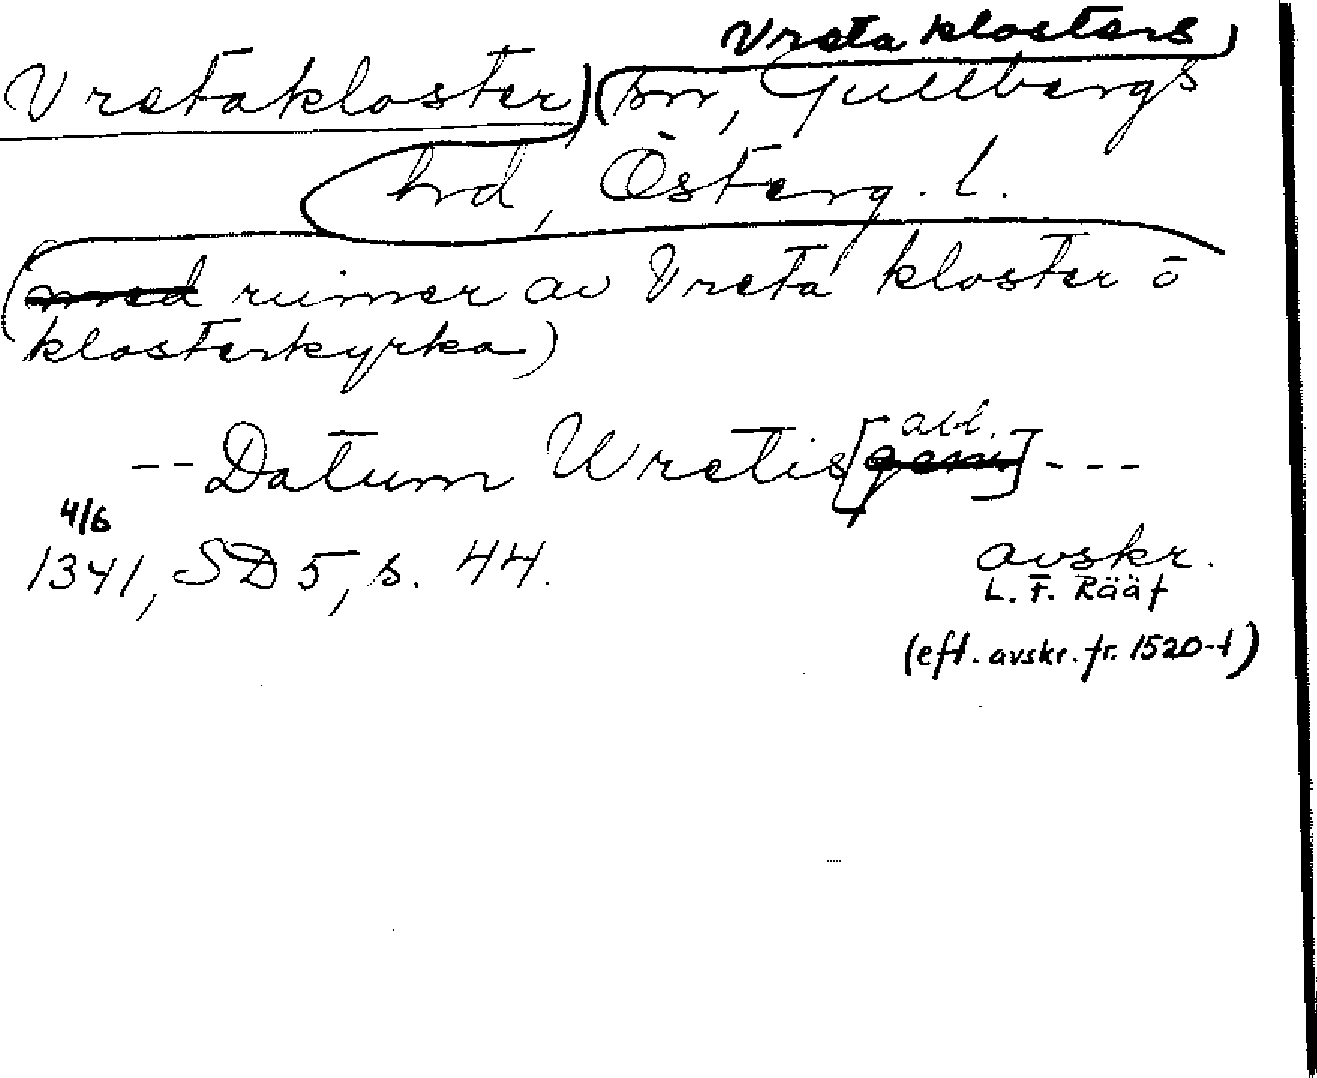 Vreta klosters
Vretakloster) (sn, Gullbergs
hrd, Österg. l.
(med ruiner av Vreta kloster o
klosterkyrka)
-- Datum Wretis [gen. abl.] ---
4/6
1341, SD 5, s. 44.
avskr.
L. F. Rääf
(eft. avskr. fr. 1520-t)